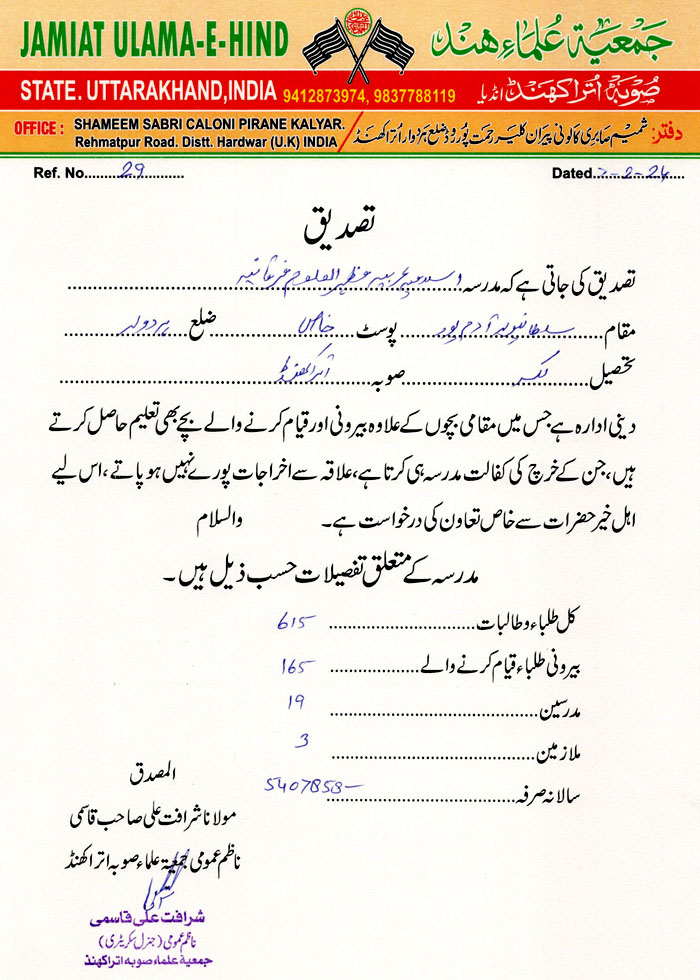 JAMIAT ULAMA-E-HIND
جمعیۃ عُلماءِ ھند
STATE. UTTARAKHAND,INDIA 9412873974, 9837788119
صُوبہ اُتراکھنڈ انڈیا
OFFICE : SHAMEEM SABRI CALONI PIRANE KALYAR.
Rehmatpur Road. Distt. Hardwar (U.K) INDIA
دفتر: شمیم صابری کالونی پیران کلیر رحمت پور روڈ ضلع ہرِدوار اُتراکھنڈ
Ref. No. 29 Dated. 2-2-24
تصدیق
تصدیق کی جاتی ہے کہ مدرسہ اسلامیہ عربیہ
مقام سلطانپور آدم پور پوسٹ خاص ضلع ہردوار
تحصیل لکسر صوبہ اتراکھنڈ
دینی ادارہ ہے جس میں مقامی بچوں کے علاوہ بیرونی اور قیام کرنے والے بچے بھی تعلیم حاصل کرتے
ہیں، جن کے خرچ کی کفالت مدرسہ ہی کرتا ہے، علاقہ سے اخراجات پورے نہیں ہو پاتے، اس لیے
اہل خیر حضرات سے خاص تعاون کی درخواست ہے۔ والسلام
مدرسہ کے متعلق تفصیلات حسب ذیل ہیں۔
کل طلباء و طالبات 615
بیرونی طلباء قیام کرنے والے 165
مدرسین 19
ملازمین 3
سالانہ صرفہ 5407858
المصدق
مولانا شرافت علی صاحب قاسمی
ناظم عمومی جمعیۃ علماء صوبہ اتراکھنڈ
شرافت علی قاسمی
ناظم عمومی (جنرل سکریٹری)
جمعیۃ علماء صوبہ اتراکھنڈ